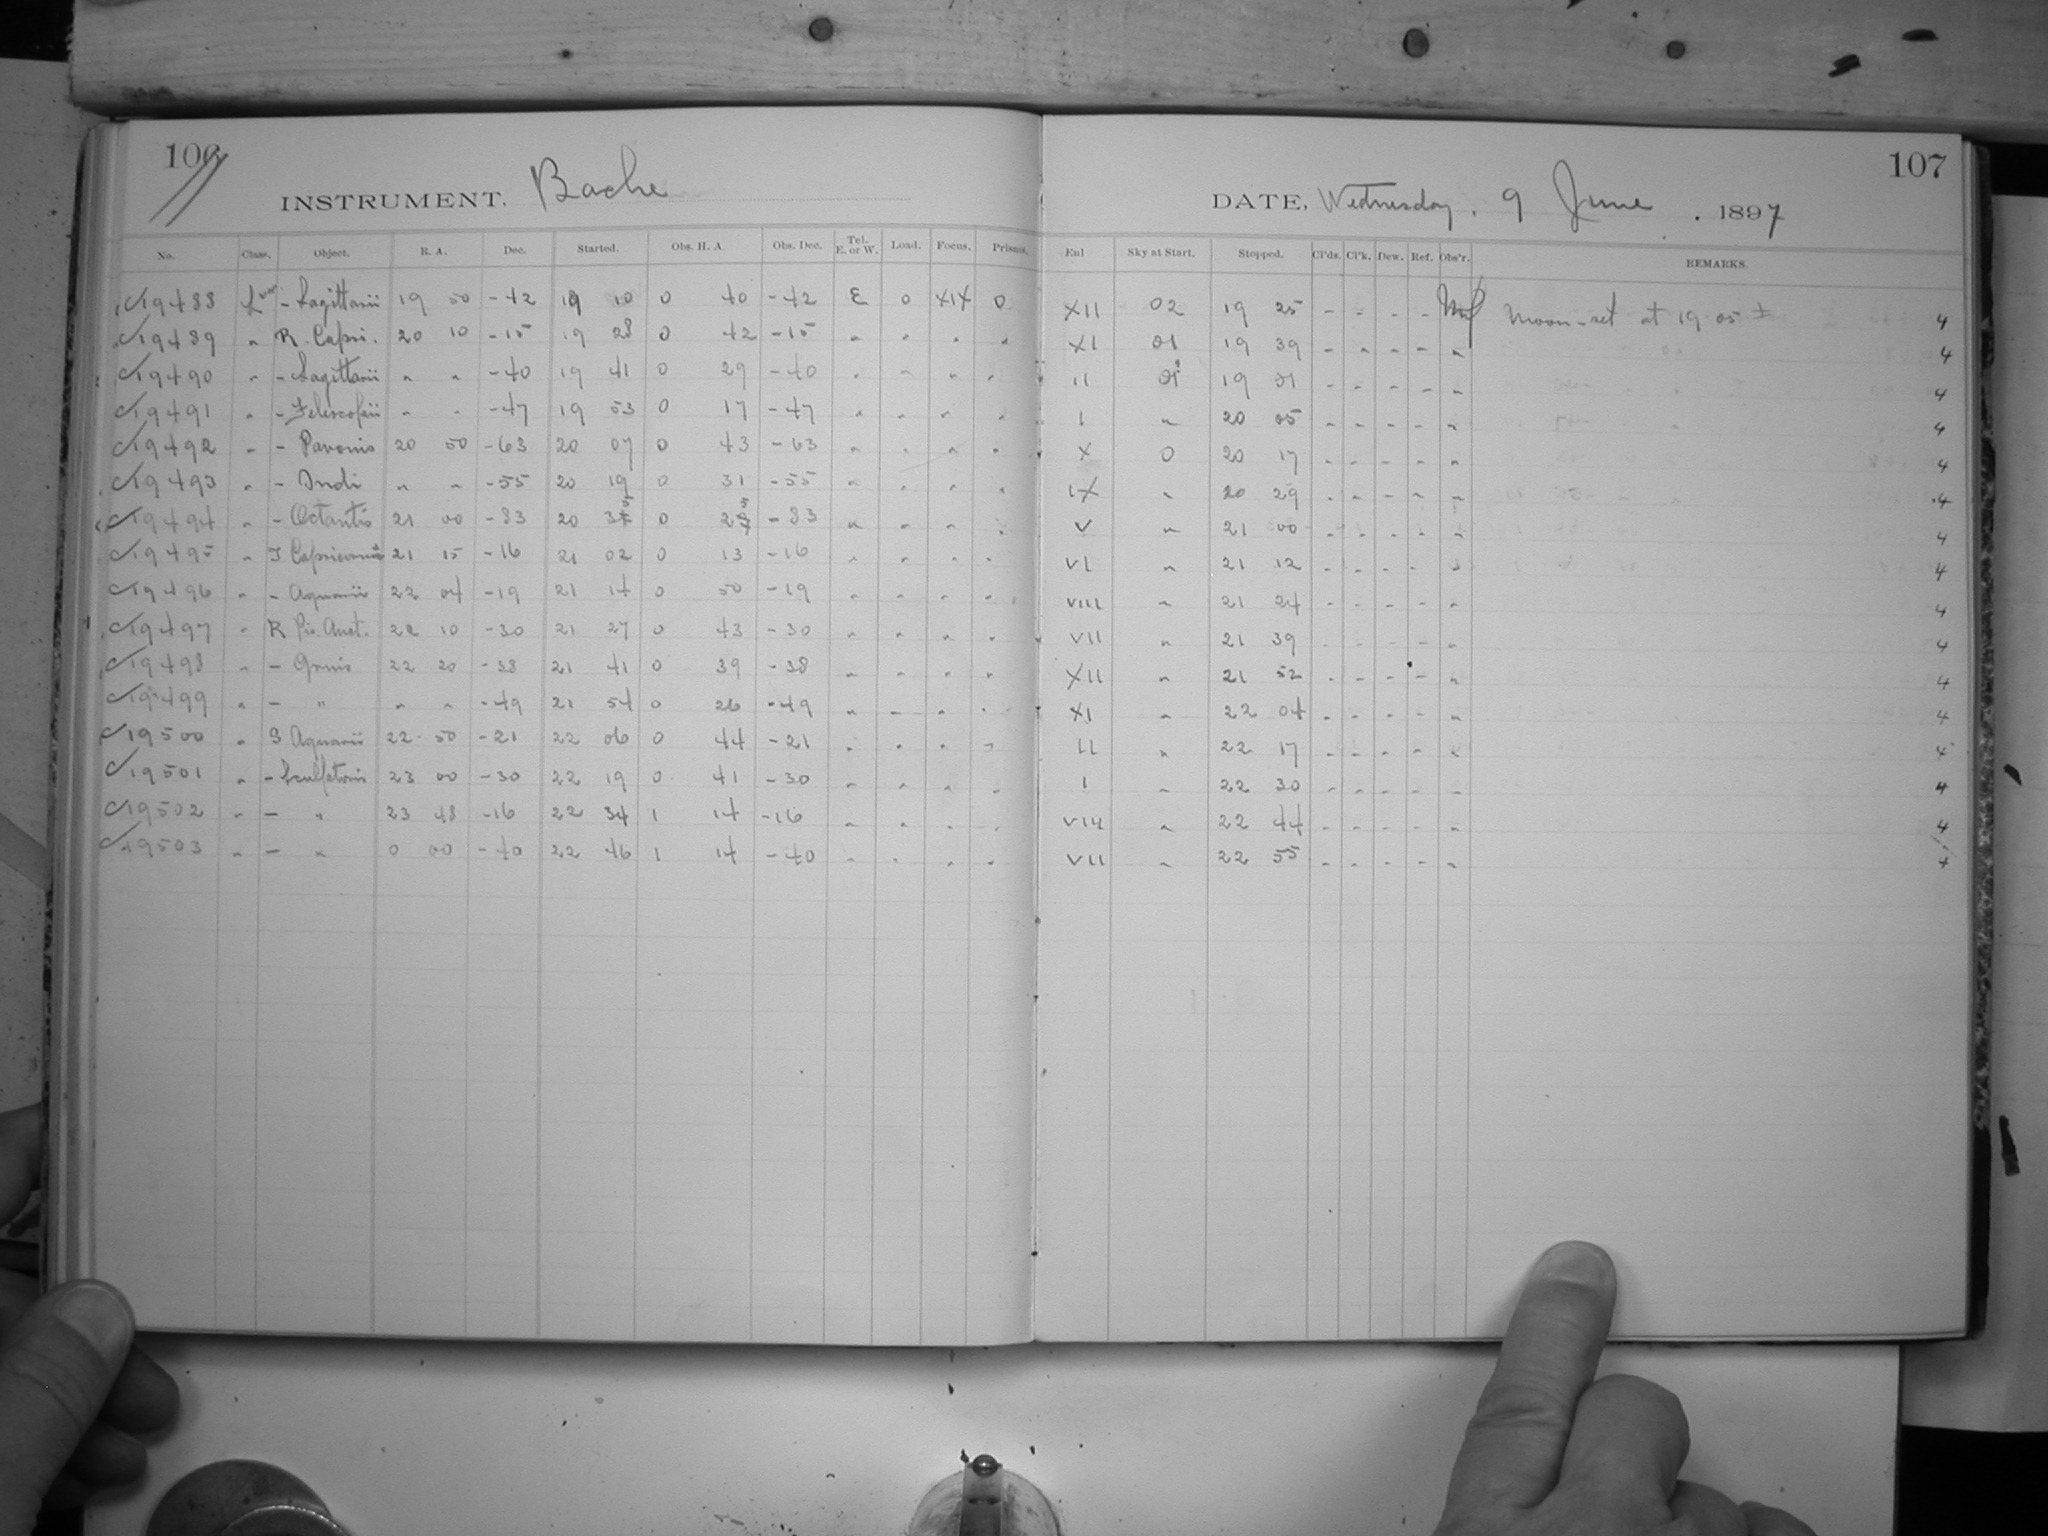 106
INSTRUMENT, Bache
No. Class. Object. R. A. Dec. Started. Obs. H. A. Obs. Dec. Tel. E. or W. Load. Focus. Prisms.
19488 L var - Sagittarii 19 50 -42 19 10 0 40 -42 E 0 XIX 0
19489 " R. Capri. 20 10 -15 19 28 0 42 -15 " " " "
19490 " - Sagittarii " " -40 19 41 0 29 -40 " " " "
19491 " - Telescopii " " -47 19 53 0 17 -47 " " " "
19492 " - Pavonis 20 50 -63 20 07 0 43 -63 " " " "
19493 " - Indi " " -55 20 19 0 31 -55 " " " "
19494 " - Octantis 21 00 -83 20 35 0 25 -83 " " " "
19495 " T Capricorni 21 15 -16 21 02 0 13 -16 " " " "
19496 " - Aquarii 22 04 -19 21 14 0 50 -19 " " " "
19497 " R Pis. Aust. 22 10 -30 21 27 0 43 -30 " " " "
19498 " - Gruis 22 20 -38 21 41 0 39 -38 " " " "
19499 " - " " " -49 21 54 0 26 -49 " " " "
19500 " S Aquarii 22 50 -21 22 06 0 44 -21 " " " "
19501 " - Sculptoris 23 00 -30 22 19 0 41 -30 " " " "
19502 " - " 23 48 -16 22 34 1 14 -16 " " " "
19503 " - " 0 00 -40 22 46 1 14 -40 " " " "
107
DATE, Wednesday, 9 June, 1897
Enl Sky at Start. Stopped. Cl'ds. Cl'k. Dew. Ref. Obs'r. REMARKS.
XII 02 19 25 - - - - Moon-set at 19 05 ± 4
XI 01 19 39 - - - - " 4
II 01 19 51 - - - - " 4
I " 20 05 - - - - " 4
X 0 20 17 - - - - " 4
IX " 20 29 - - - - " 4
V " 21 00 - - - - " 4
VI " 21 12 - - - - " 4
VIII " 21 24 - - - - " 4
VII " 21 39 - - - - " 4
XII " 21 52 - - - - " 4
XI " 22 04 - - - - " 4
II " 22 17 - - - - " 4
I " 22 30 - - - - " 4
VIII " 22 44 - - - - " 4
VII " 22 55 - - - - " 4